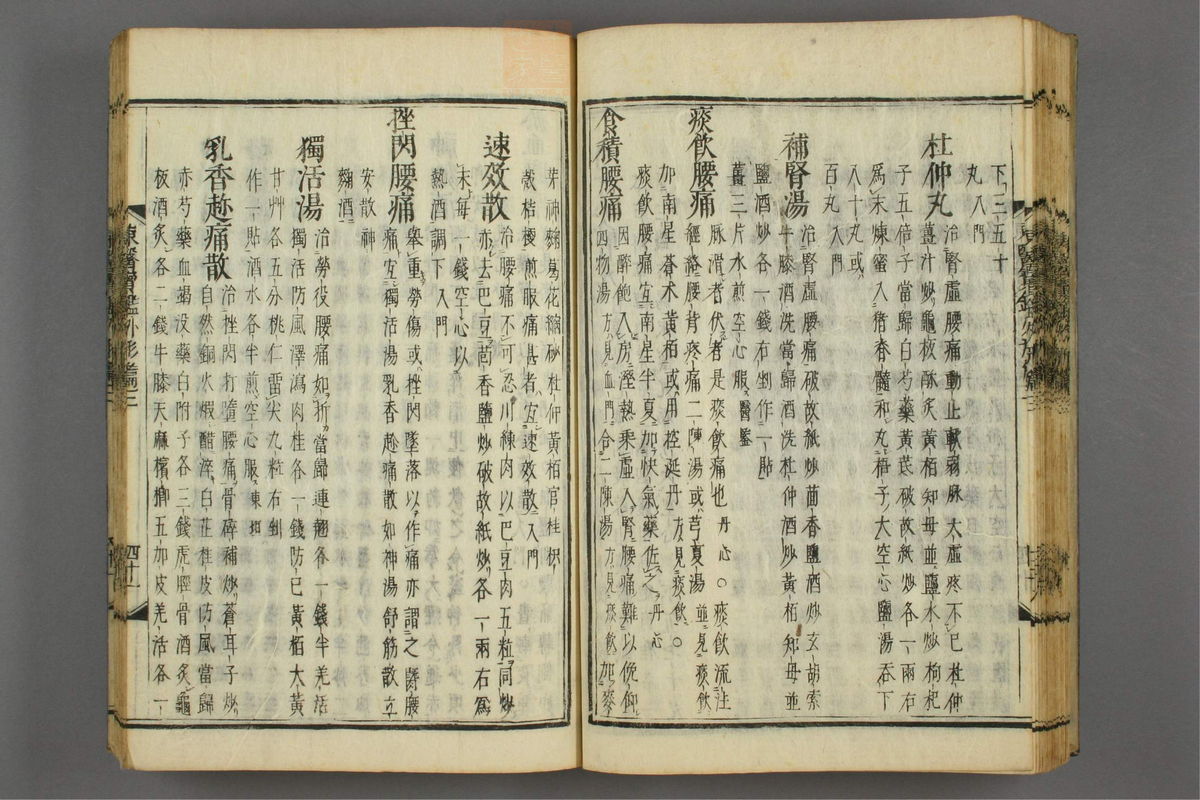 下三五十
丸入門
杜仲丸 治腎虛腰痛動止軟弱脉大虛疼不已杜仲
薑汁炒龜板酥炙黃栢知母並鹽水炒枸杞
子五倍子當歸白芍藥黃芪破故紙炒各一兩右
爲末煉蜜入猪脊髓和丸梧子大空心鹽湯吞下
八十丸或
百丸入門
補腎湯 治腎虛腰痛破故紙炒茴香鹽酒炒玄胡索
牛膝酒洗當歸酒洗杜仲酒炒黃栢知母並
鹽酒炒各一錢右剉作一貼
薑三片水煎空心服醫鑒
痰飮腰痛 脉滑者伏者是痰飮痛也丹心○痰飮流注
經絡腰背疼痛二陳湯或芎夏湯並見痰飮
加南星蒼术黃栢或用控涎丹方見痰飮○
痰飮腰痛宜南星半夏加快氣藥佐之丹心
食積腰痛 因醉飽入房溼熱乘虛入腎腰痛難以俛仰
四物湯方見血門合二陳湯方見痰飮加麥
芽神麴葛花縮砂杜仲黃栢官桂枳
殼桔梗煎服痛甚者宜速效散入門
速效散 治腰痛不可忍川練肉以巴豆肉五粒同炒
赤去巴豆茴香鹽炒破故紙炒各一兩右爲
末每一錢空心以
熱酒調下入門
挫閃腰痛 擧重勞傷或挫閃墜落以作痛亦謂之䐴腰
痛宜獨活湯乳香趂痛散如神湯舒筋散立
安散神
麴酒
獨活湯 治勞役腰痛如折當歸連翹各一錢半羌活
獨活防風澤瀉肉桂各一錢防已黃栢大黃
甘艸各五分桃仁雷尖九粒右剉
作一貼酒水各半煎空心服東垣
乳香趂痛散 治挫閃打墮腰痛骨碎補炒蒼耳子炒
自然銅火煆醋淬白芷桂皮防風當歸
赤芍藥血竭没藥白附子各三錢虎脛骨酒炙龜
板酒炙各二錢牛膝天麻檳榔五加皮羌活各一